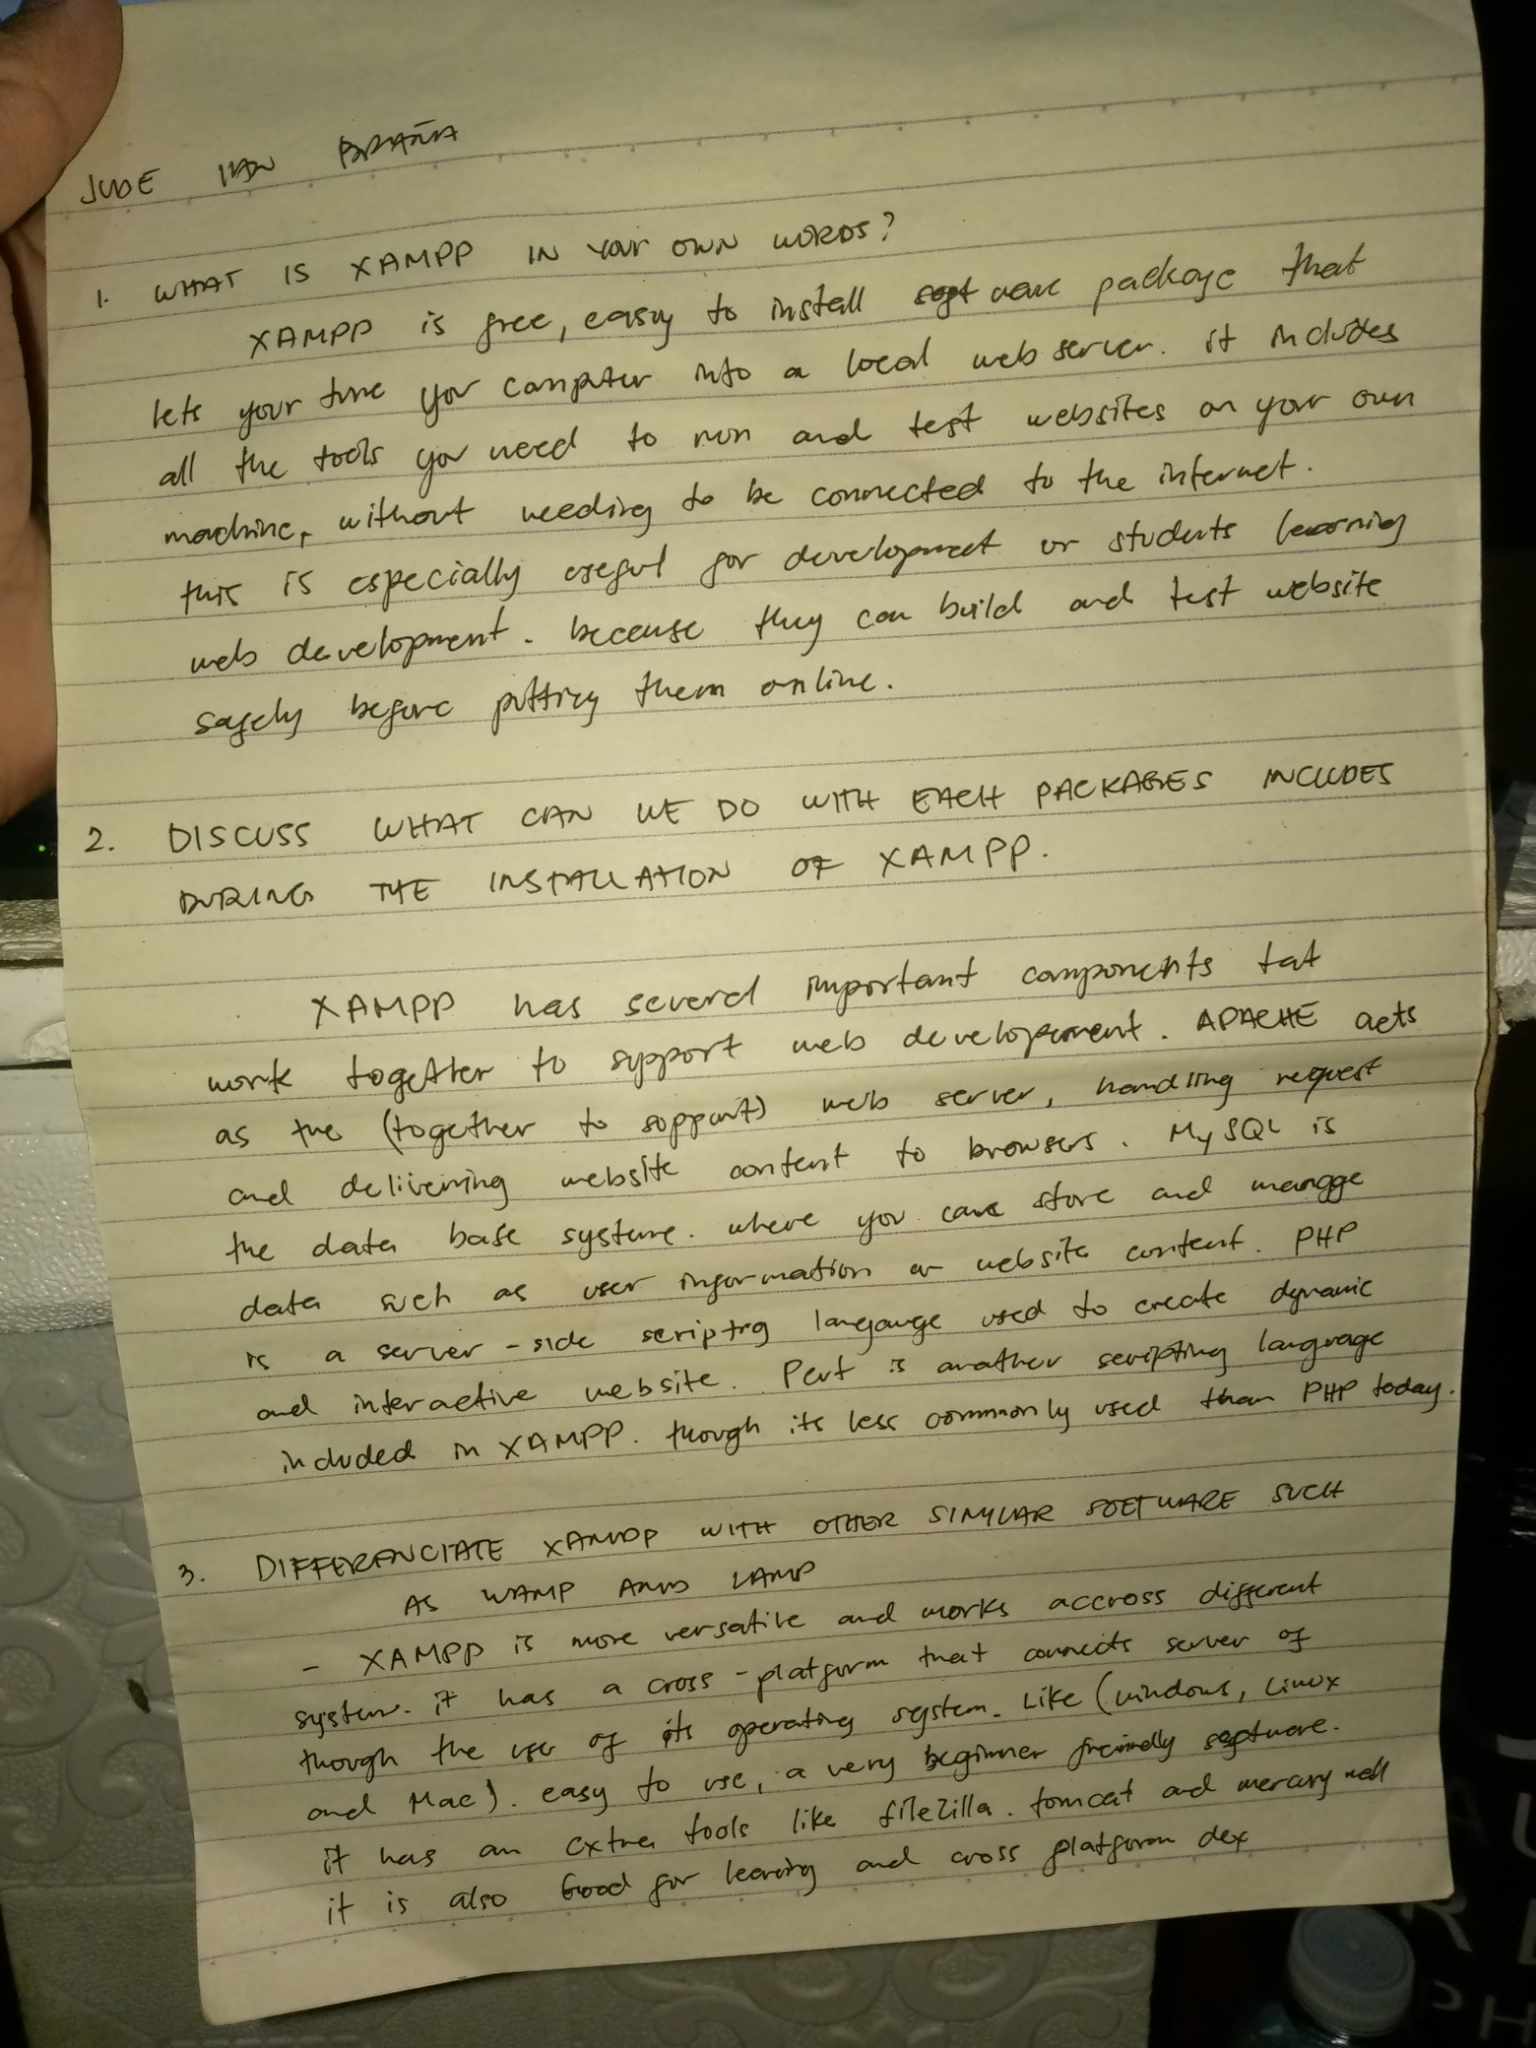 JUDE IVAN
1. WHAT IS XAMPP IN YOUR OWN WORDS?
XAMPP is free, easy to install software package that
lets your turne your computer into a local web server. it includes
all the tools you need to run and test websites on your own
machine, without needing to be connected to the internet.
this is especially useful for development or students learning
web development. because they can build and test website
safely before putting them online.
2. DISCUSS WHAT CAN WE DO WITH EACH PACKAGES INCLUDES
DURING THE INSTALLATION OF XAMPP.
XAMPP has several important components tat
work together to support web development. APACHE acts
as the (together to support) web server, handling request
and delivering website content to browsers. MySQL is
the data base systeme. where you can store and manage
data such as user information or website content. PHP
is a server-side scripting language used to create dynamic
and interactive website. Perl is another scripting language
included in XAMPP. though its less commonly used than PHP today.
3. DIFFERENCIATE XAMPP WITH OTHER SIMILAR SOFTWARE SUCH
AS WAMP AND LAMP
- XAMPP is more versatile and works accross different
system. it has a cross-platform that connects server of
though the use of its operating system. Like (windows, Linux
and Mac). easy to use, a very beginner freindly software.
it has an extra tools like filezilla. tomcat and mercury
it is also Good for learing and cross platform dex